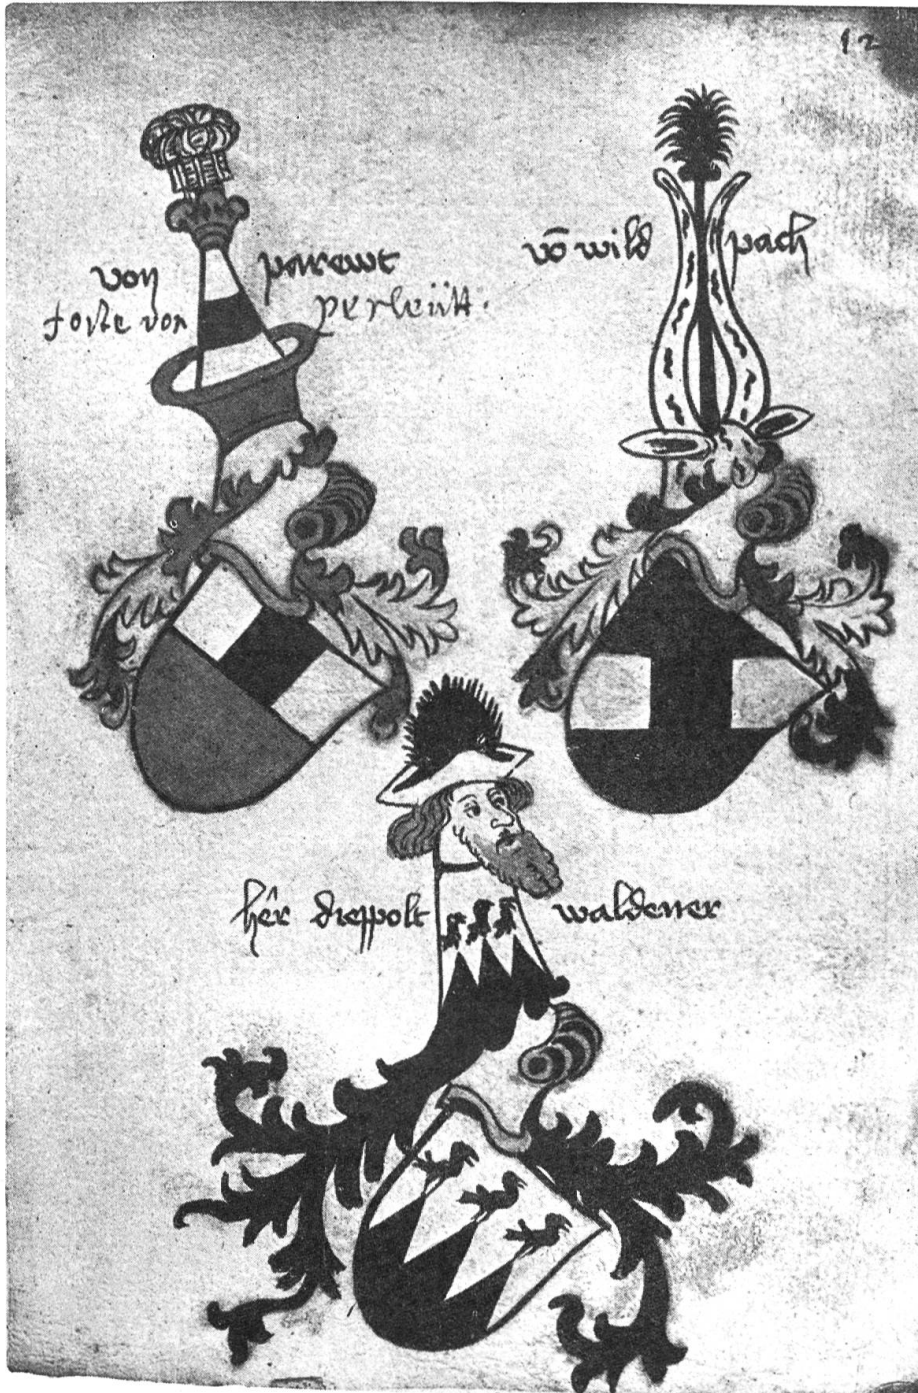 12
von parewt
von perleütt.
vō wild pach
hêr dieppolt waldener